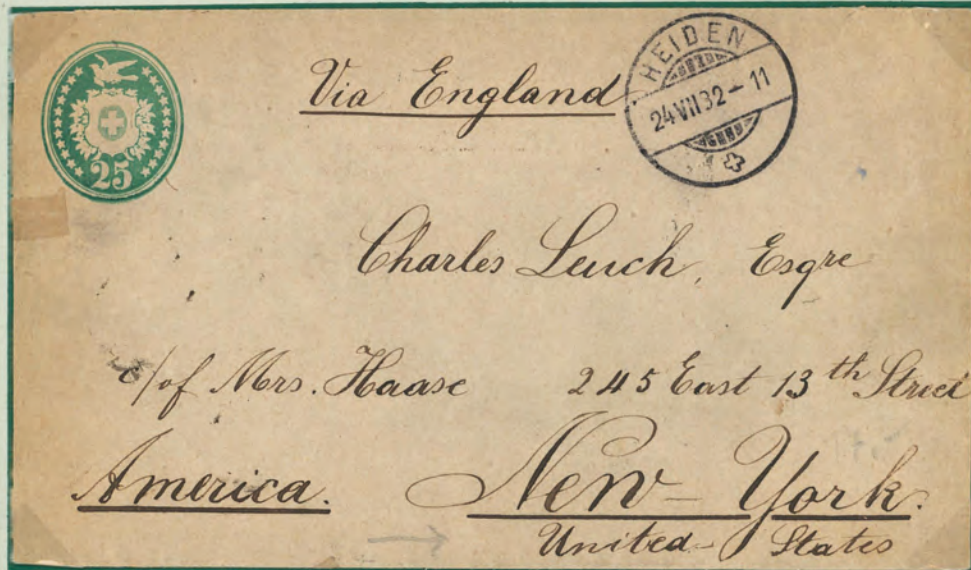 25
Via England
HEIDEN
24 VII 82 - 11
Charles Leuch, Esqre
c/of Mrs. Haase 245 East 13th Street
America. New-York.
United-States